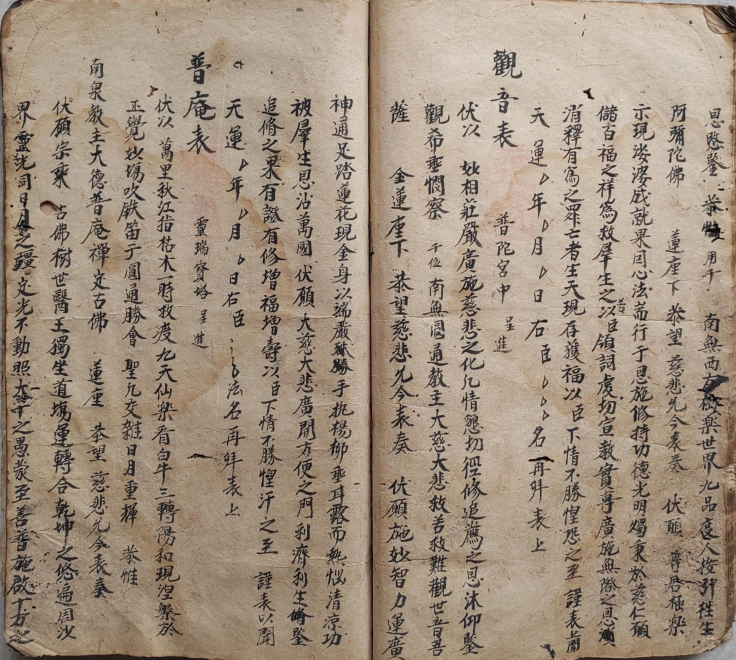 恩啓鑒 恭惟 用于 南無西方極樂世界九品度人接引牲生
阿彌陀佛 蓮座下 恭望 慈悲允今表奏 伏願 尊居極樂
示現娑婆感就果因心法而行于恩施修持功德光明燭秉於慈仁願
儲百福之祥為救羣生之以臣領詞虔切宣教實專廣施無際之恩
消釋有為之罪亡者生天現存獲福以臣下情不勝惶恐之至 謹表
天運年月日右臣 名再拜表上
觀音表 普陀宮中 呈進
伏以 妙相莊嚴廣施慈悲之化凡情懇切徑修追薦之恩沐仰鑒
觀希垂憫察 千位南無圓通教主大慈大悲救苦救難觀世音菩
薩 金蓮座下 恭望慈悲允今表奏 伏願施妙智力運廣
神通足踏蓮花現金身以端嚴 勝手執楊柳垂耳露而熱惱清涼功
被羣生恩沾萬國 伏願 大慈大悲廣開方便之門利濟利生 鑒
追脩之果有證有修增福增壽以臣下情不勝惶汗之至 謹表以聞
天運年月日右臣 法名再拜表上
普庵表 靈瑞寶塔 呈進
伏以 萬里秋江指枯木一時救渡九天仙樂看白牛三轉陽和現涅槃於
正覺 塲吹鉄笛于圓通勝會 聖凡交雜日月重輝 恭惟
南泉教主大德普庵禪定古佛 蓮座 恭望 慈悲允今表奏
伏願宗乘 古佛樹世醫王獨坐道塲運轉合乾坤之悠遍周沙
界靈光同日月之 定光不動照大千之愚蒙至善普施啟下方之